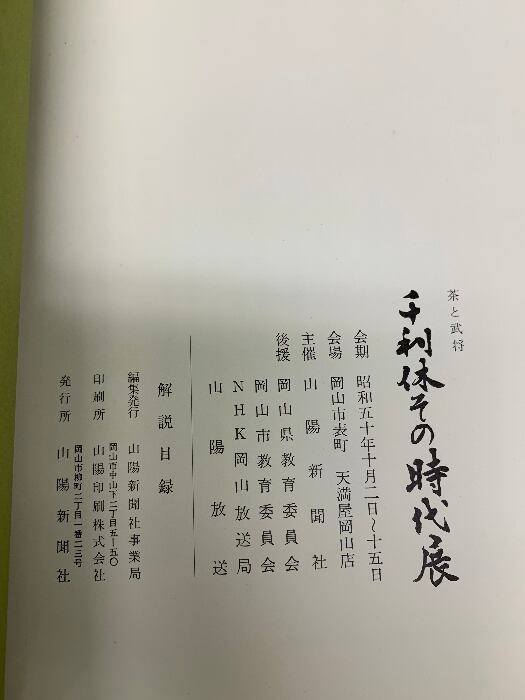 茶と武将
千利休その時代展
会期 昭和五十年十月二日～十五日
会場 岡山市表町 天満屋岡山店
主催 山陽新聞社
後援 岡山県教育委員会
岡山市教育委員会
NHK岡山放送局
山陽放送
解説目録
編集発行 山陽新聞社事業局
岡山市中山下二丁目五ー五〇
印刷所 山陽印刷株式会社
岡山市柳町二丁目一番二三号
発行所 山陽新聞社